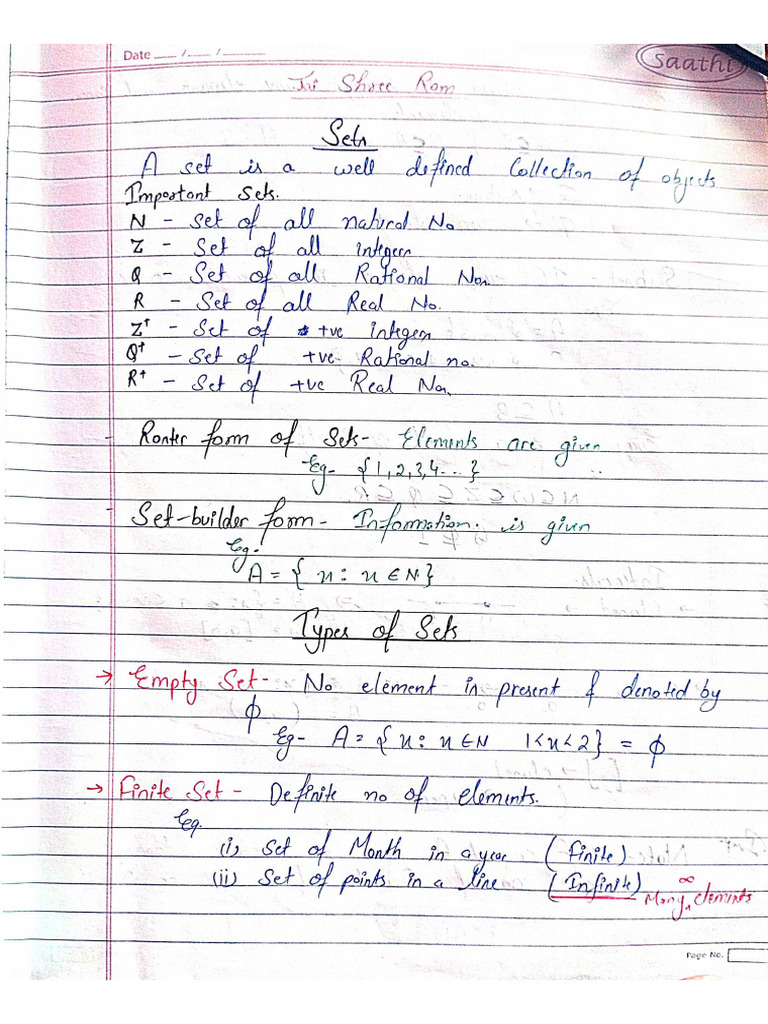 Date __/__/__
Saathi
Jai Shree Ram
Sets
A set is a well defined Collection of objects
Important Sets.
N - Set of all natural No
Z - Set of all integers
Q - Set of all Rational Nos.
R - Set of all Real No.
Z⁺ - Set of +ve integers
Q⁺ - Set of +ve Rational no.
R⁺ - Set of +ve Real Nos.
- Roster form of Sets- Elements are given
Eg- {1,2,3,4...}
- Set-builder form - Information is given
Eg-
A = { x : x ∈ N }
Types of Sets
→ Empty Set - No element in present & denoted by
ϕ
Eg- A = { x : x ∈ N 1<x<2 } = ϕ
→ Finite Set - Definite no of elements.
Eg.
(i) Set of Month in a year (finite)
(ii) Set of points in a line (Infinite) Many ∞ elements
Page No.